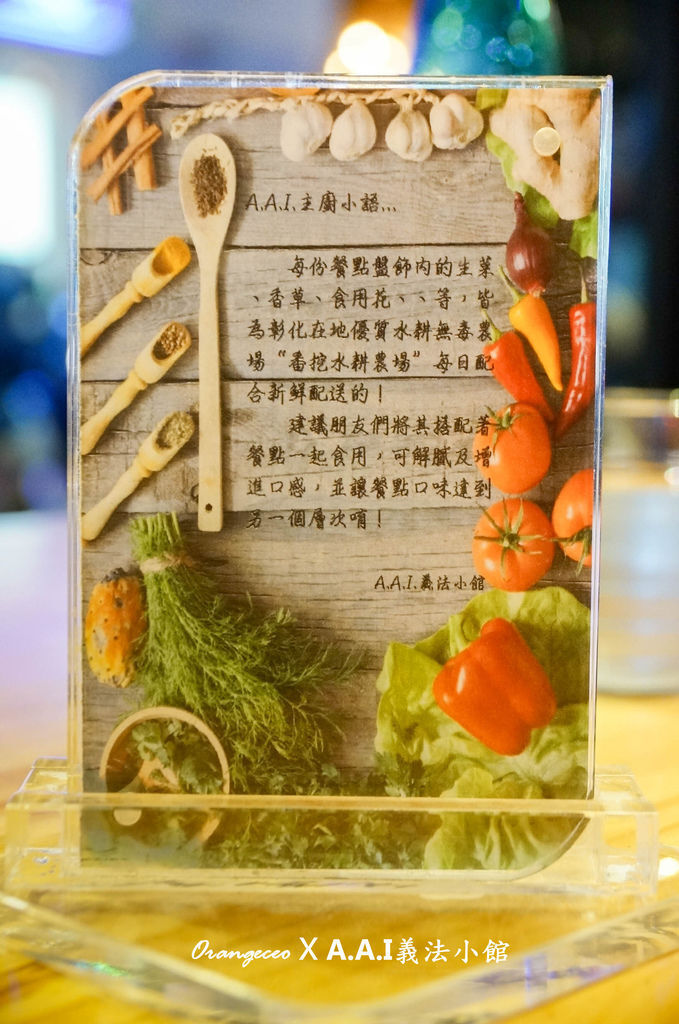 A.A.I.主廚小語...
每份餐點盤飾內的生菜
、香草、食用花、、等，皆
為彰化在地優質水耕無毒農
場“番挖水耕農場”每日配
合新鮮配送的！
建議朋友們將其搭配著
餐點一起食用，可解膩及增
進口感，並讓餐點口味達到
另一個層次唷！
A.A.I.義法小館
Orangeceo X A.A.I義法小館